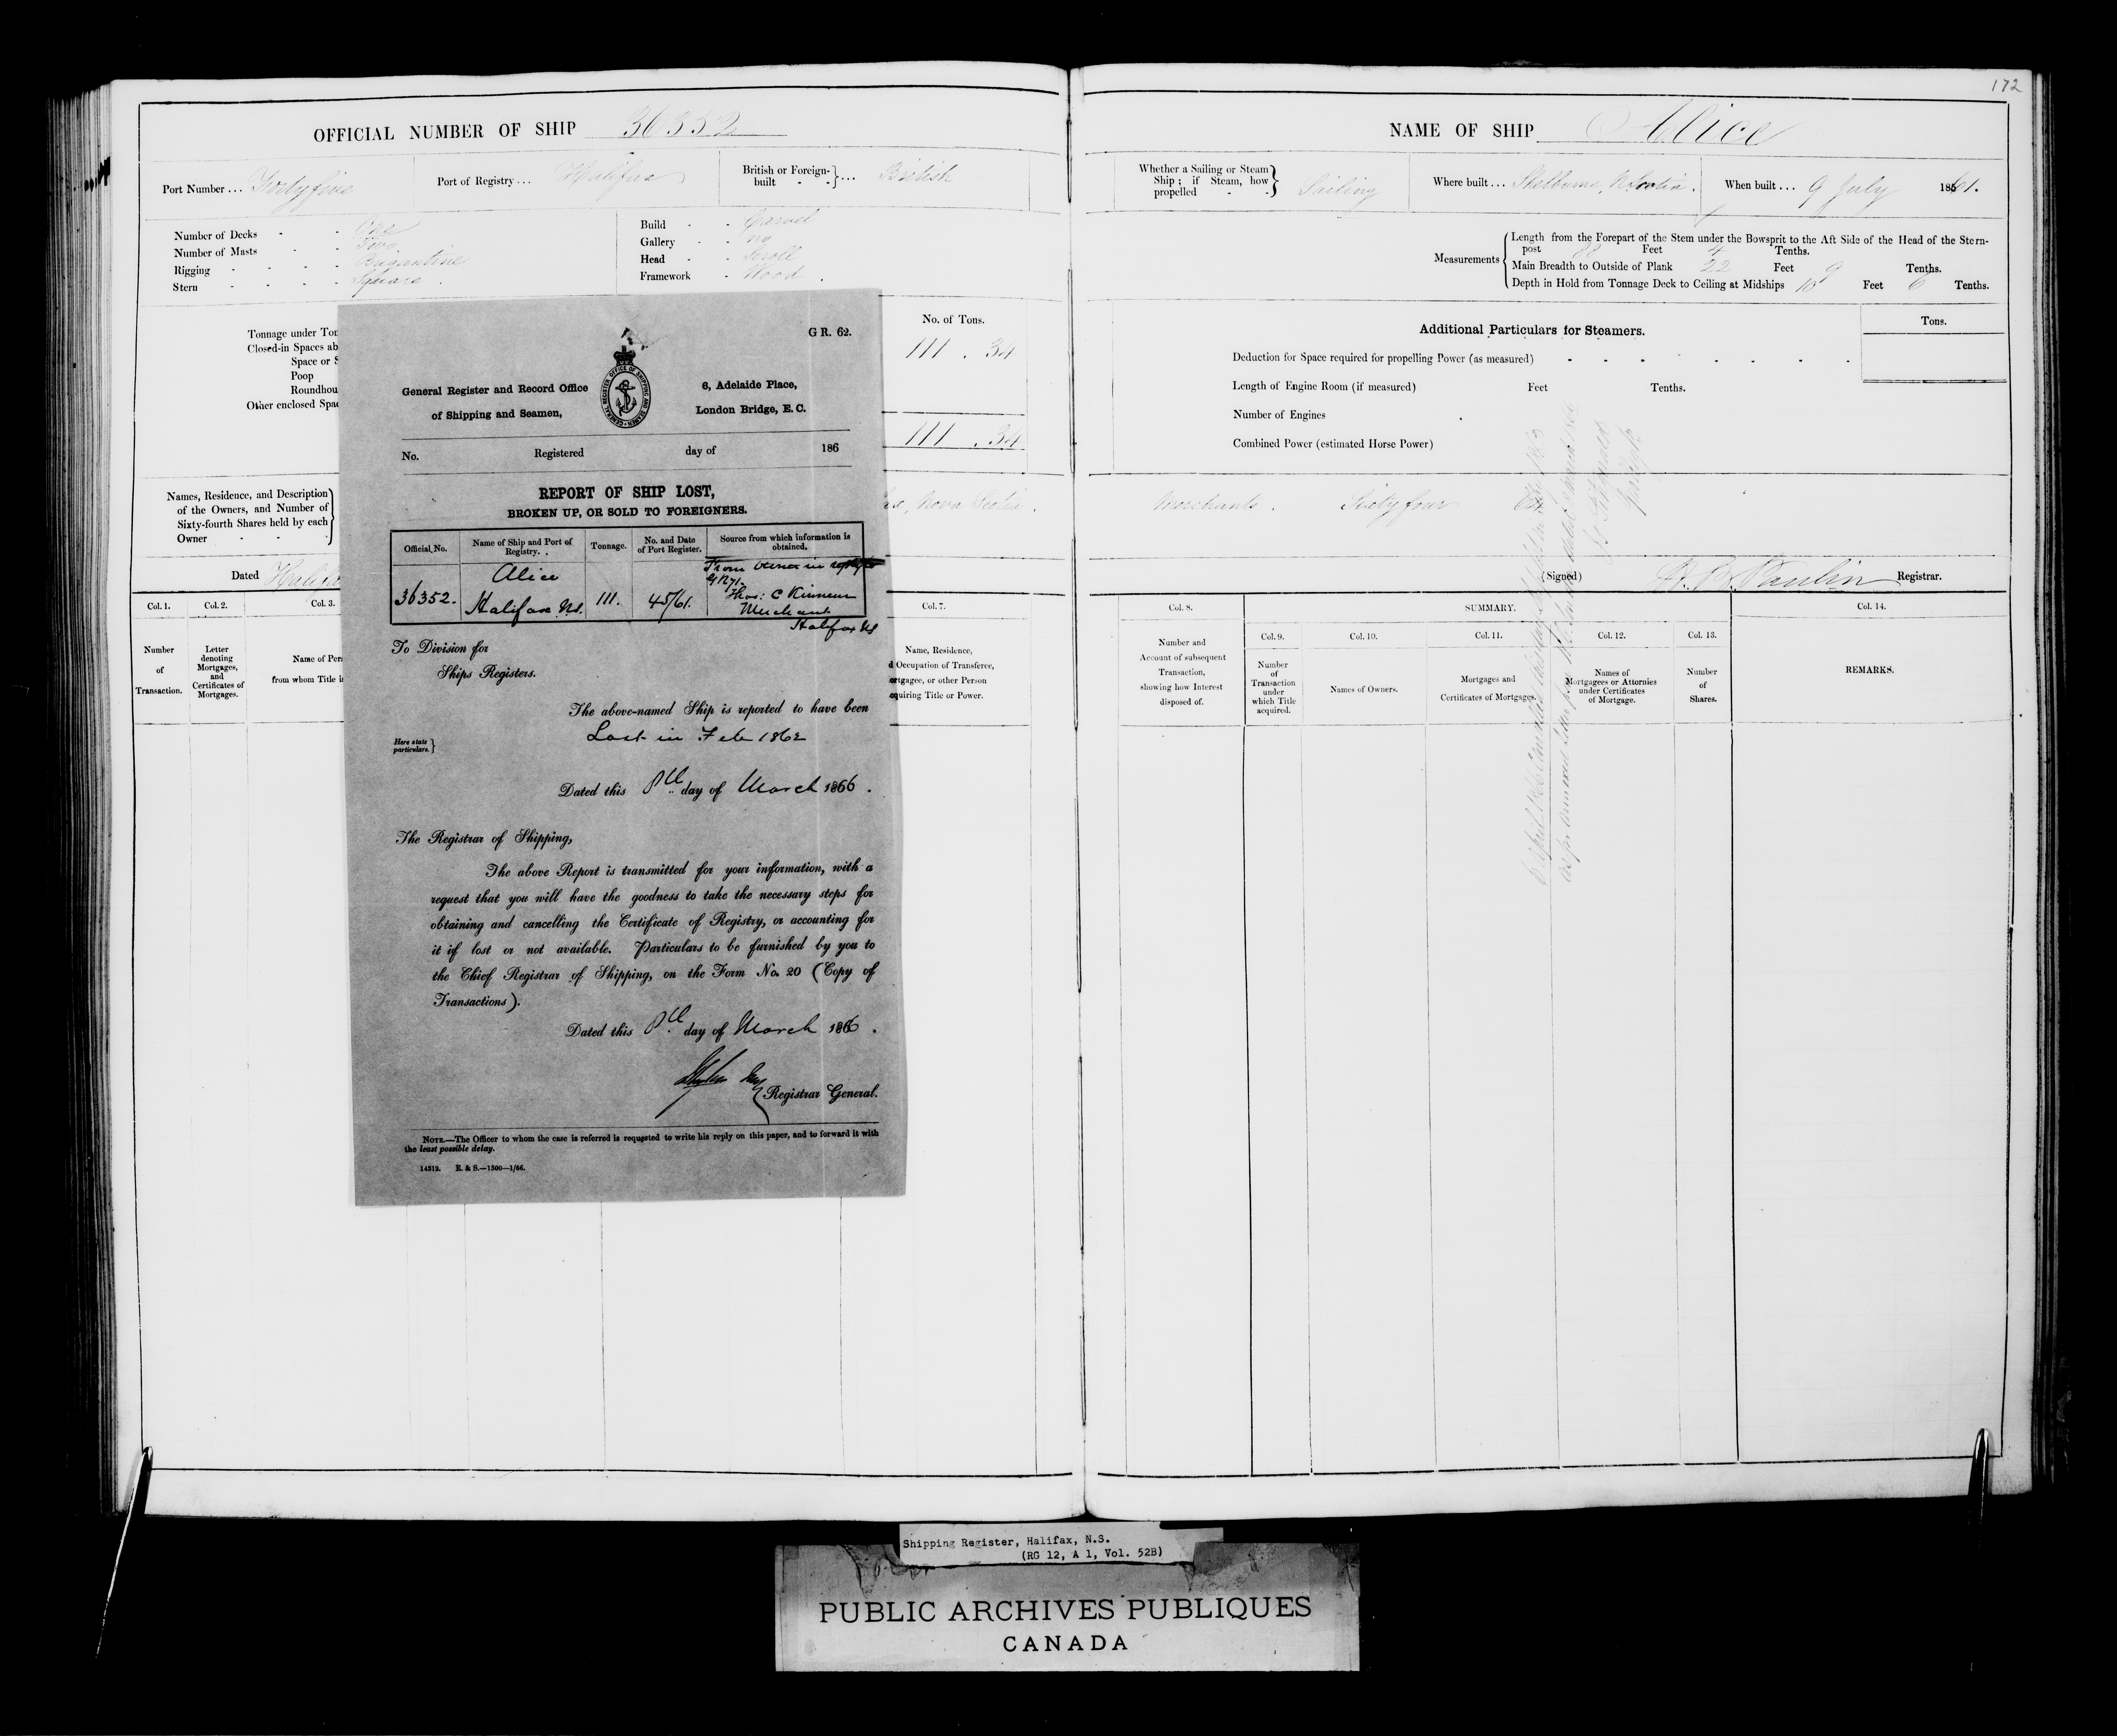 172
OFFICIAL NUMBER OF SHIP 36352
Port Number... Forty five
Port of Registry... Halifax
British or Foreign-built - - }... British
Number of Decks - - One
Number of Masts - - Two
Rigging - - - - Brigantine
Stern - - - - Square.
Build - - Carvel
Gallery - - no
Head - - Scroll
Framework - Wood.
Tonnage under Ton
Closed-in Spaces ab
Space or
Poop
Roundhou
Other enclosed Spac
No. of Tons.
111 . 34
111 . 34
Names, Residence, and Description
of the Owners, and Number of
Sixty-fourth Shares held by each
Owner - - -
Nova Scotia.
Dated Halifa
Col. 1.
Col. 2.
Col. 3.
Col. 7.
Number
of
Transaction.
Letter
denoting
Mortgages,
and
Certificates of
Mortgages.
Name of Pers
from whom Title i
Name, Residence,
d Occupation of Transferee,
ortgagee, or other Person
quiring Title or Power.
G R. 62.
General Register and Record Office
of Shipping and Seamen,
GENERAL REGISTER OFFICE OF SHIPPING AND SEAMEN
6, Adelaide Place,
London Bridge, E.C.
No. Registered day of 186
REPORT OF SHIP LOST,
BROKEN UP, OR SOLD TO FOREIGNERS.
Official No.
Name of Ship and Port of
Registry.
Tonnage.
No. and Date
of Port Register.
Source from which information is
obtained.
36352.
Alice
Halifax NS.
111.
45/61.
From owner in reply to
Thos: C Kinnear
Merchant
Halifax NS
To Division for
Ships Registers.
The above-named Ship is reported to have been
Here state
particulars. }
Lost in Feb 1862
Dated this 8th day of March 1866.
The Registrar of Shipping,
The above Report is transmitted for your information, with a
request that you will have the goodness to take the necessary steps for
obtaining and cancelling the Certificate of Registry, or accounting for
it if lost or not available. Particulars to be furnished by you to
the Chief Registrar of Shipping, on the Form No. 20 (Copy of
Transactions).
Dated this 8th day of March 1866.
Registrar General.
NOTE.—The Officer to whom the case is referred is requested to write his reply on this paper, and to forward it with
the least possible delay.
14312. E. & S.—1500—1/66.
NAME OF SHIP Alice
Whether a Sailing or Steam
Ship; if Steam, how
propelled - - } Sailing
Where built... Shelburne, N Scotia.
When built... 9 July 1861.
Measurements
Length from the Forepart of the Stem under the Bowsprit to the Aft Side of the Head of the Stern-
post 88 Feet 4 Tenths.
Main Breadth to Outside of Plank 22 Feet 9 Tenths.
Depth in Hold from Tonnage Deck to Ceiling at Midships 10 Feet 6 Tenths.
Additional Particulars for Steamers.
Tons.
Deduction for Space required for propelling Power (as measured) - - - - - - - -
Length of Engine Room (if measured) Feet Tenths.
Number of Engines
Combined Power (estimated Horse Power)
Merchants. Sixty four
(Signed) Registrar.
Col. 8.
Number and
Account of subsequent
Transaction,
showing how Interest
disposed of.
SUMMARY.
Col. 9.
Number
of
Transaction
under
which Title
acquired.
Col. 10.
Names of Owners.
Col. 11.
Mortgages and
Certificates of Mortgages.
Col. 12.
Names of
Mortgagees or Attornies
under Certificates
of Mortgage.
Col. 13.
Number
of
Shares.
Col. 14.
REMARKS.
Shipping Register, Halifax, N.S.
(RG 12, A 1, Vol. 52B)
PUBLIC ARCHIVES PUBLIQUES
CANADA